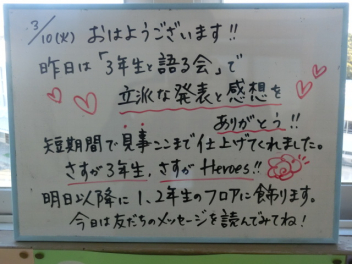 3/10(火) おはようございます!!
昨日は「3年生と語る会」で
立派な発表と感想を
ありがとう!!
短期間で見事ここまで仕上げてくれました。
さすが3年生、さすが Heroes!!
明日以降に1、2年生のフロアに飾ります。
今日は友だちのメッセージを読んでみてね!